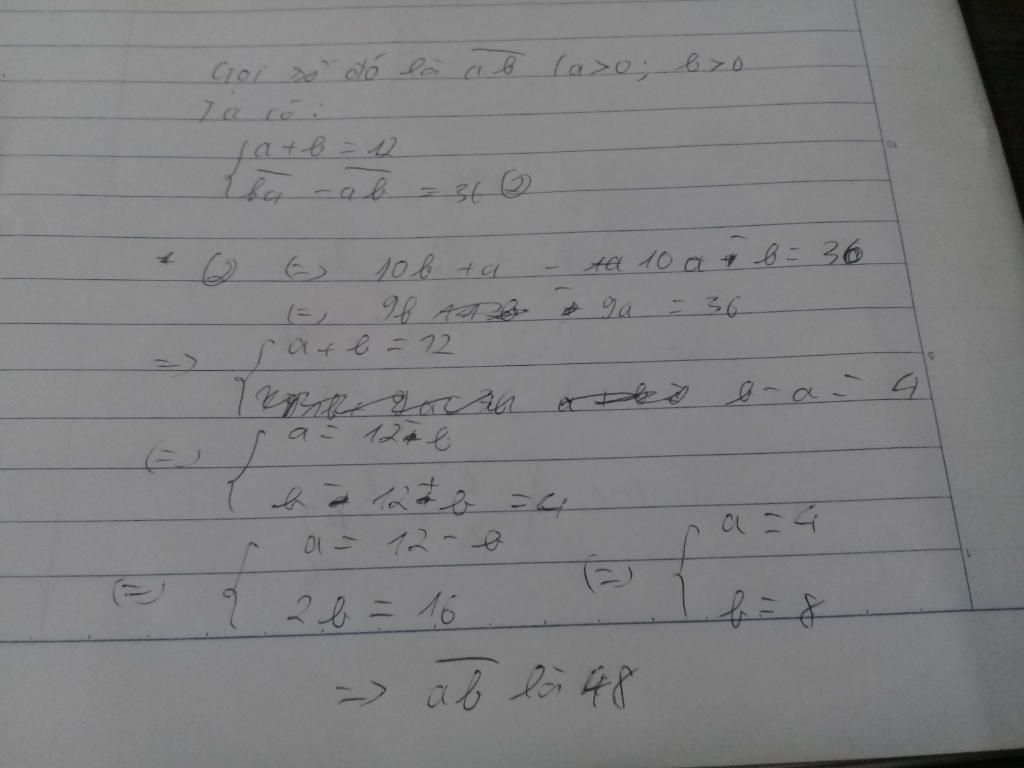 Gọi số đó là ab̅ (a>0; b>0
Ta có:
{ a + b = 12
{ b̅a̅ - a̅b̅ = 36 (2)
* (2) (=) 10b + a - 10a - b = 36
(=) 9b - 9a = 36
=> { a + b = 12
{ b - a = 4
(=) { a = 12 - b
{ b - 12 + b = 4
(=) { a = 12 - b (=) { a = 4
{ 2b = 16 { b = 8
=> a̅b̅ là 48